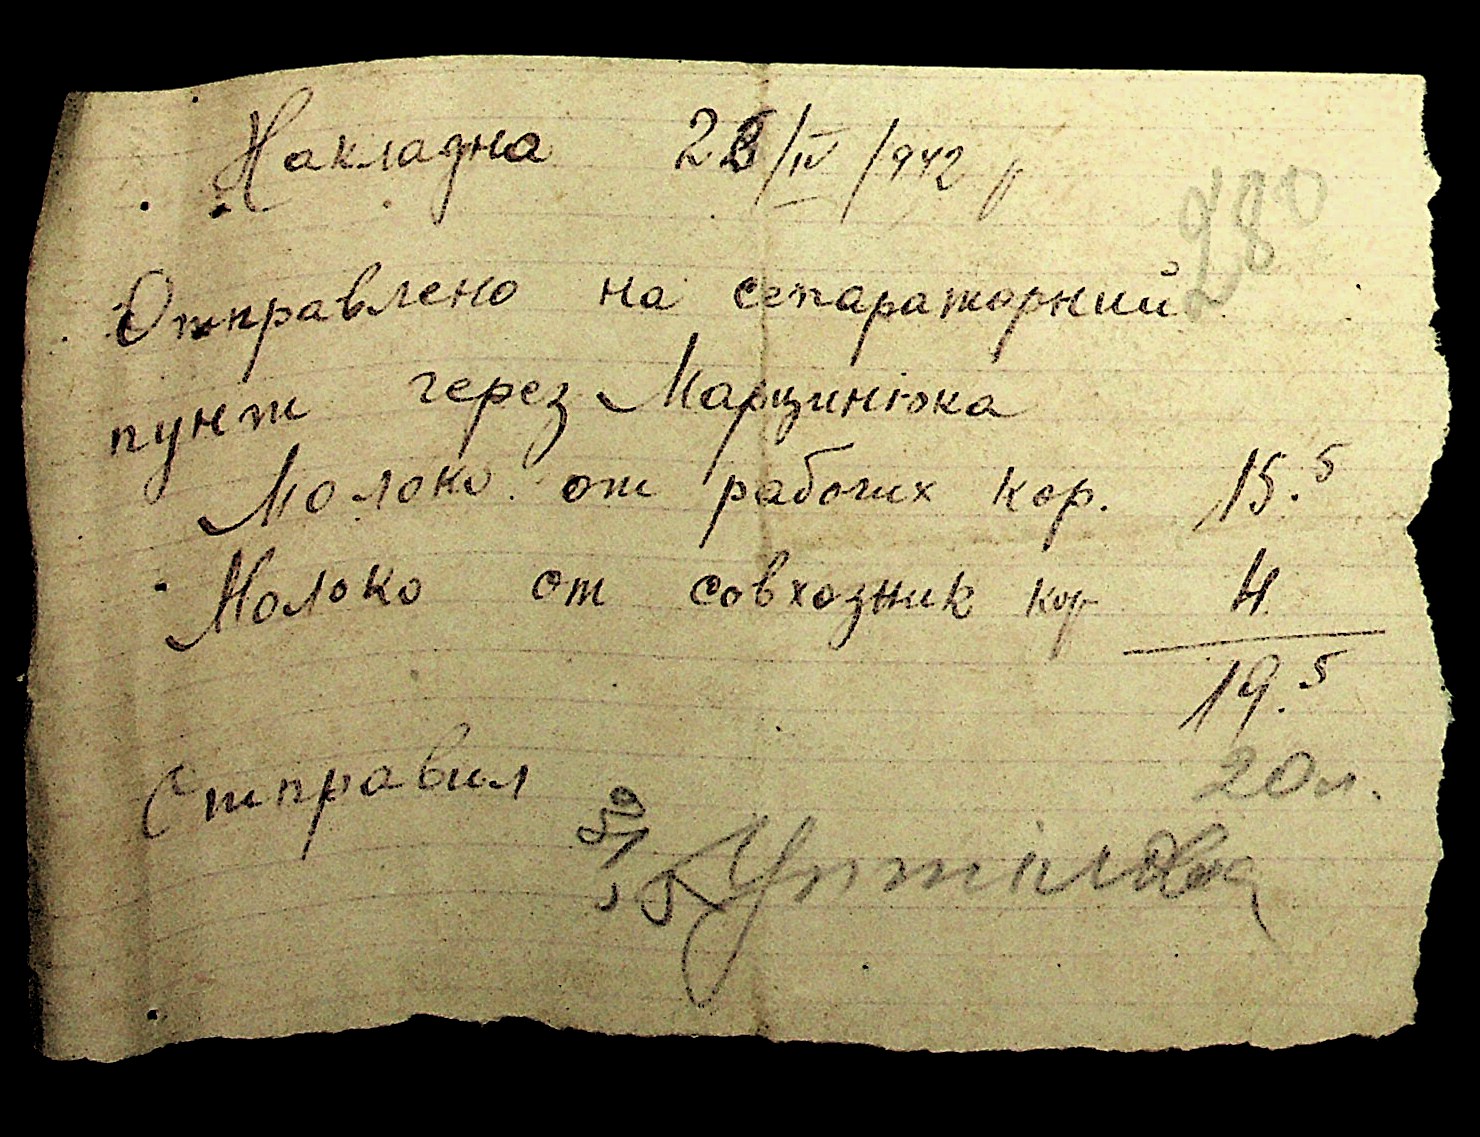 Накладна 28/IV/942 р
280
Отправлено на сепараторний
пункт через Марцинюка
Молоко от рабочих кор. 15.5
Молоко от совхозник кор 4
19.5
20 л.
Отправил